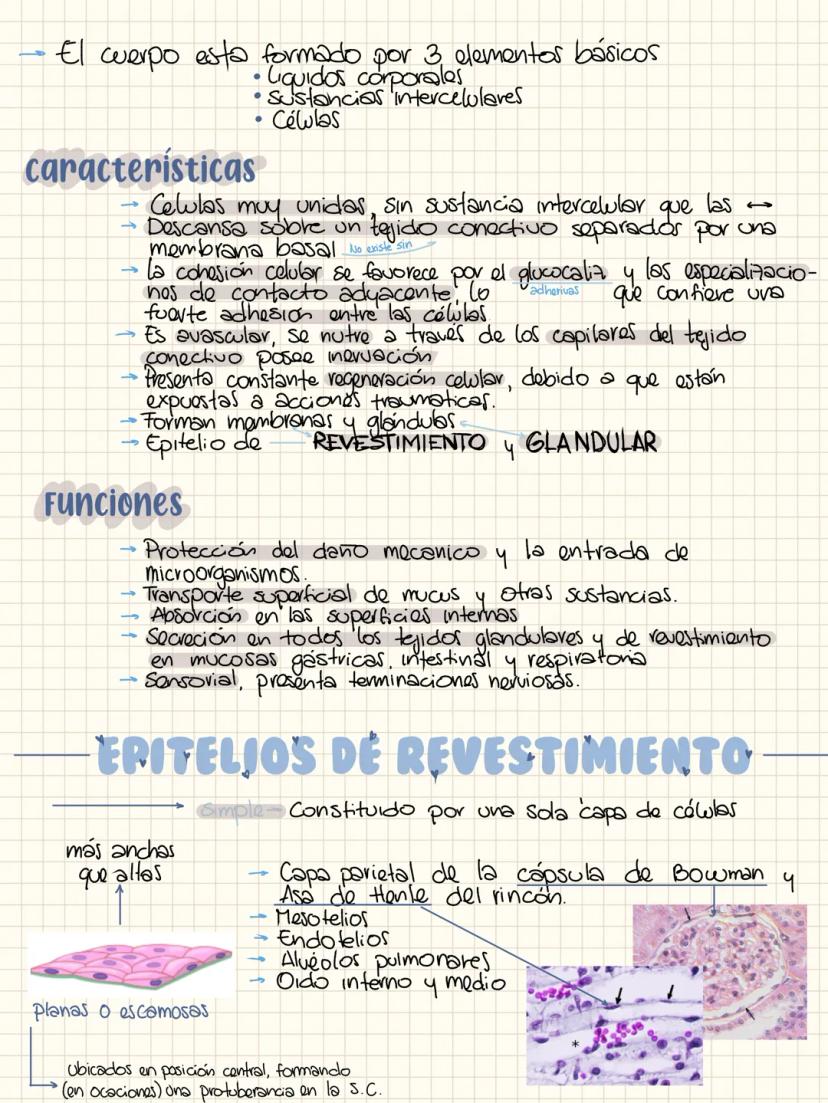 → El cuerpo esta formado por 3 elementos básicos
• Líquidos corporales
• Sustancias intercelulares
• Células
características
→ Celulas muy unidas, sin sustancia intercelular que las ↔
→ Descansa sobre un tejido conectivo separados por una
membrana basal No existe sin
→ la cohesión celular se favorece por el glucocaliz y las especializacio-
nes de contacto adyacente, lo adherivas que confiere una
fuerte adhesion entre las células
→ Es avascular, se nutre a través de los capilares del tejido
conectivo posee inervación
→ Presenta constante regeneración celular, debido a que están
expuestas a acciones traumaticas.
→ Forman membranas y glándulas
→ Epitelio de REVESTIMIENTO y GLANDULAR
FUNCIONES
→ Protección del daño mecanico y la entrada de
microorganismos.
→ Transporte superficial de mucus y otras sustancias.
→ Absorción en las superficies internas
→ Secreción en todos los tejidos glandulares y de revestimiento
en mucosas gástricas, intestinal y respiratoria
→ Sensorial, presenta terminaciones nerviosas.
EPITELIOS DE REVESTIMIENTO
simple – Constituido por una sola capa de células
más anchas
que altas
→ Capa parietal de la cápsula de Bowman y
Asa de Henle del rincón.
→ Mesotelios
→ Endotelios
→ Alvéolos pulmonares
→ Oido interno y medio
*
planas o escamosas
Ubicados en posición central, formando
(en ocaciones) una protuberancia en la S.C.